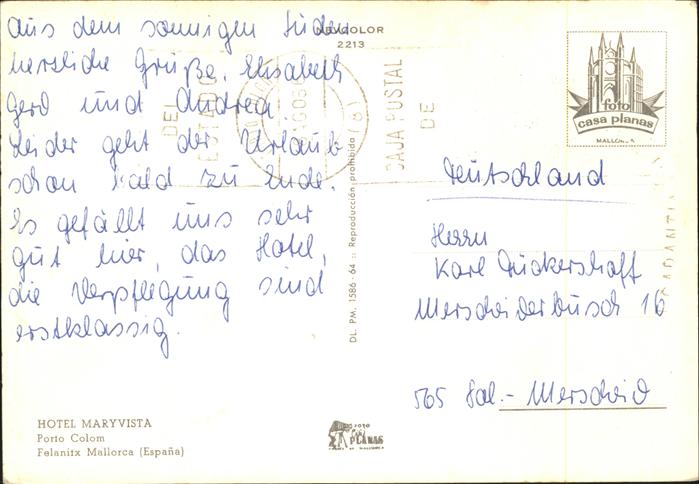 Aus dem sonnigen Süden
herzliche Grüße, Elisabeth
Gerd und Andrea.
Leider geht der Urlaub
schon bald zu Ende.
Es gefällt uns sehr
gut hier, das Hotel,
die Verpflegung sind
erstklassig.
HOTEL MARYVISTA
Porto Colom
Felanitx Mallorca (España)
COLOR
2213
DEL
ESTADO
CAJA POSTAL
DE
DL. PM. 1586-64 :: Reproducción prohibida
foto
casa planas
MALLORCA
Deutschland
Herrn
Karl
Merscheiderbusch 16
565 Sol.- Merscheid
FOTO
PLANAS